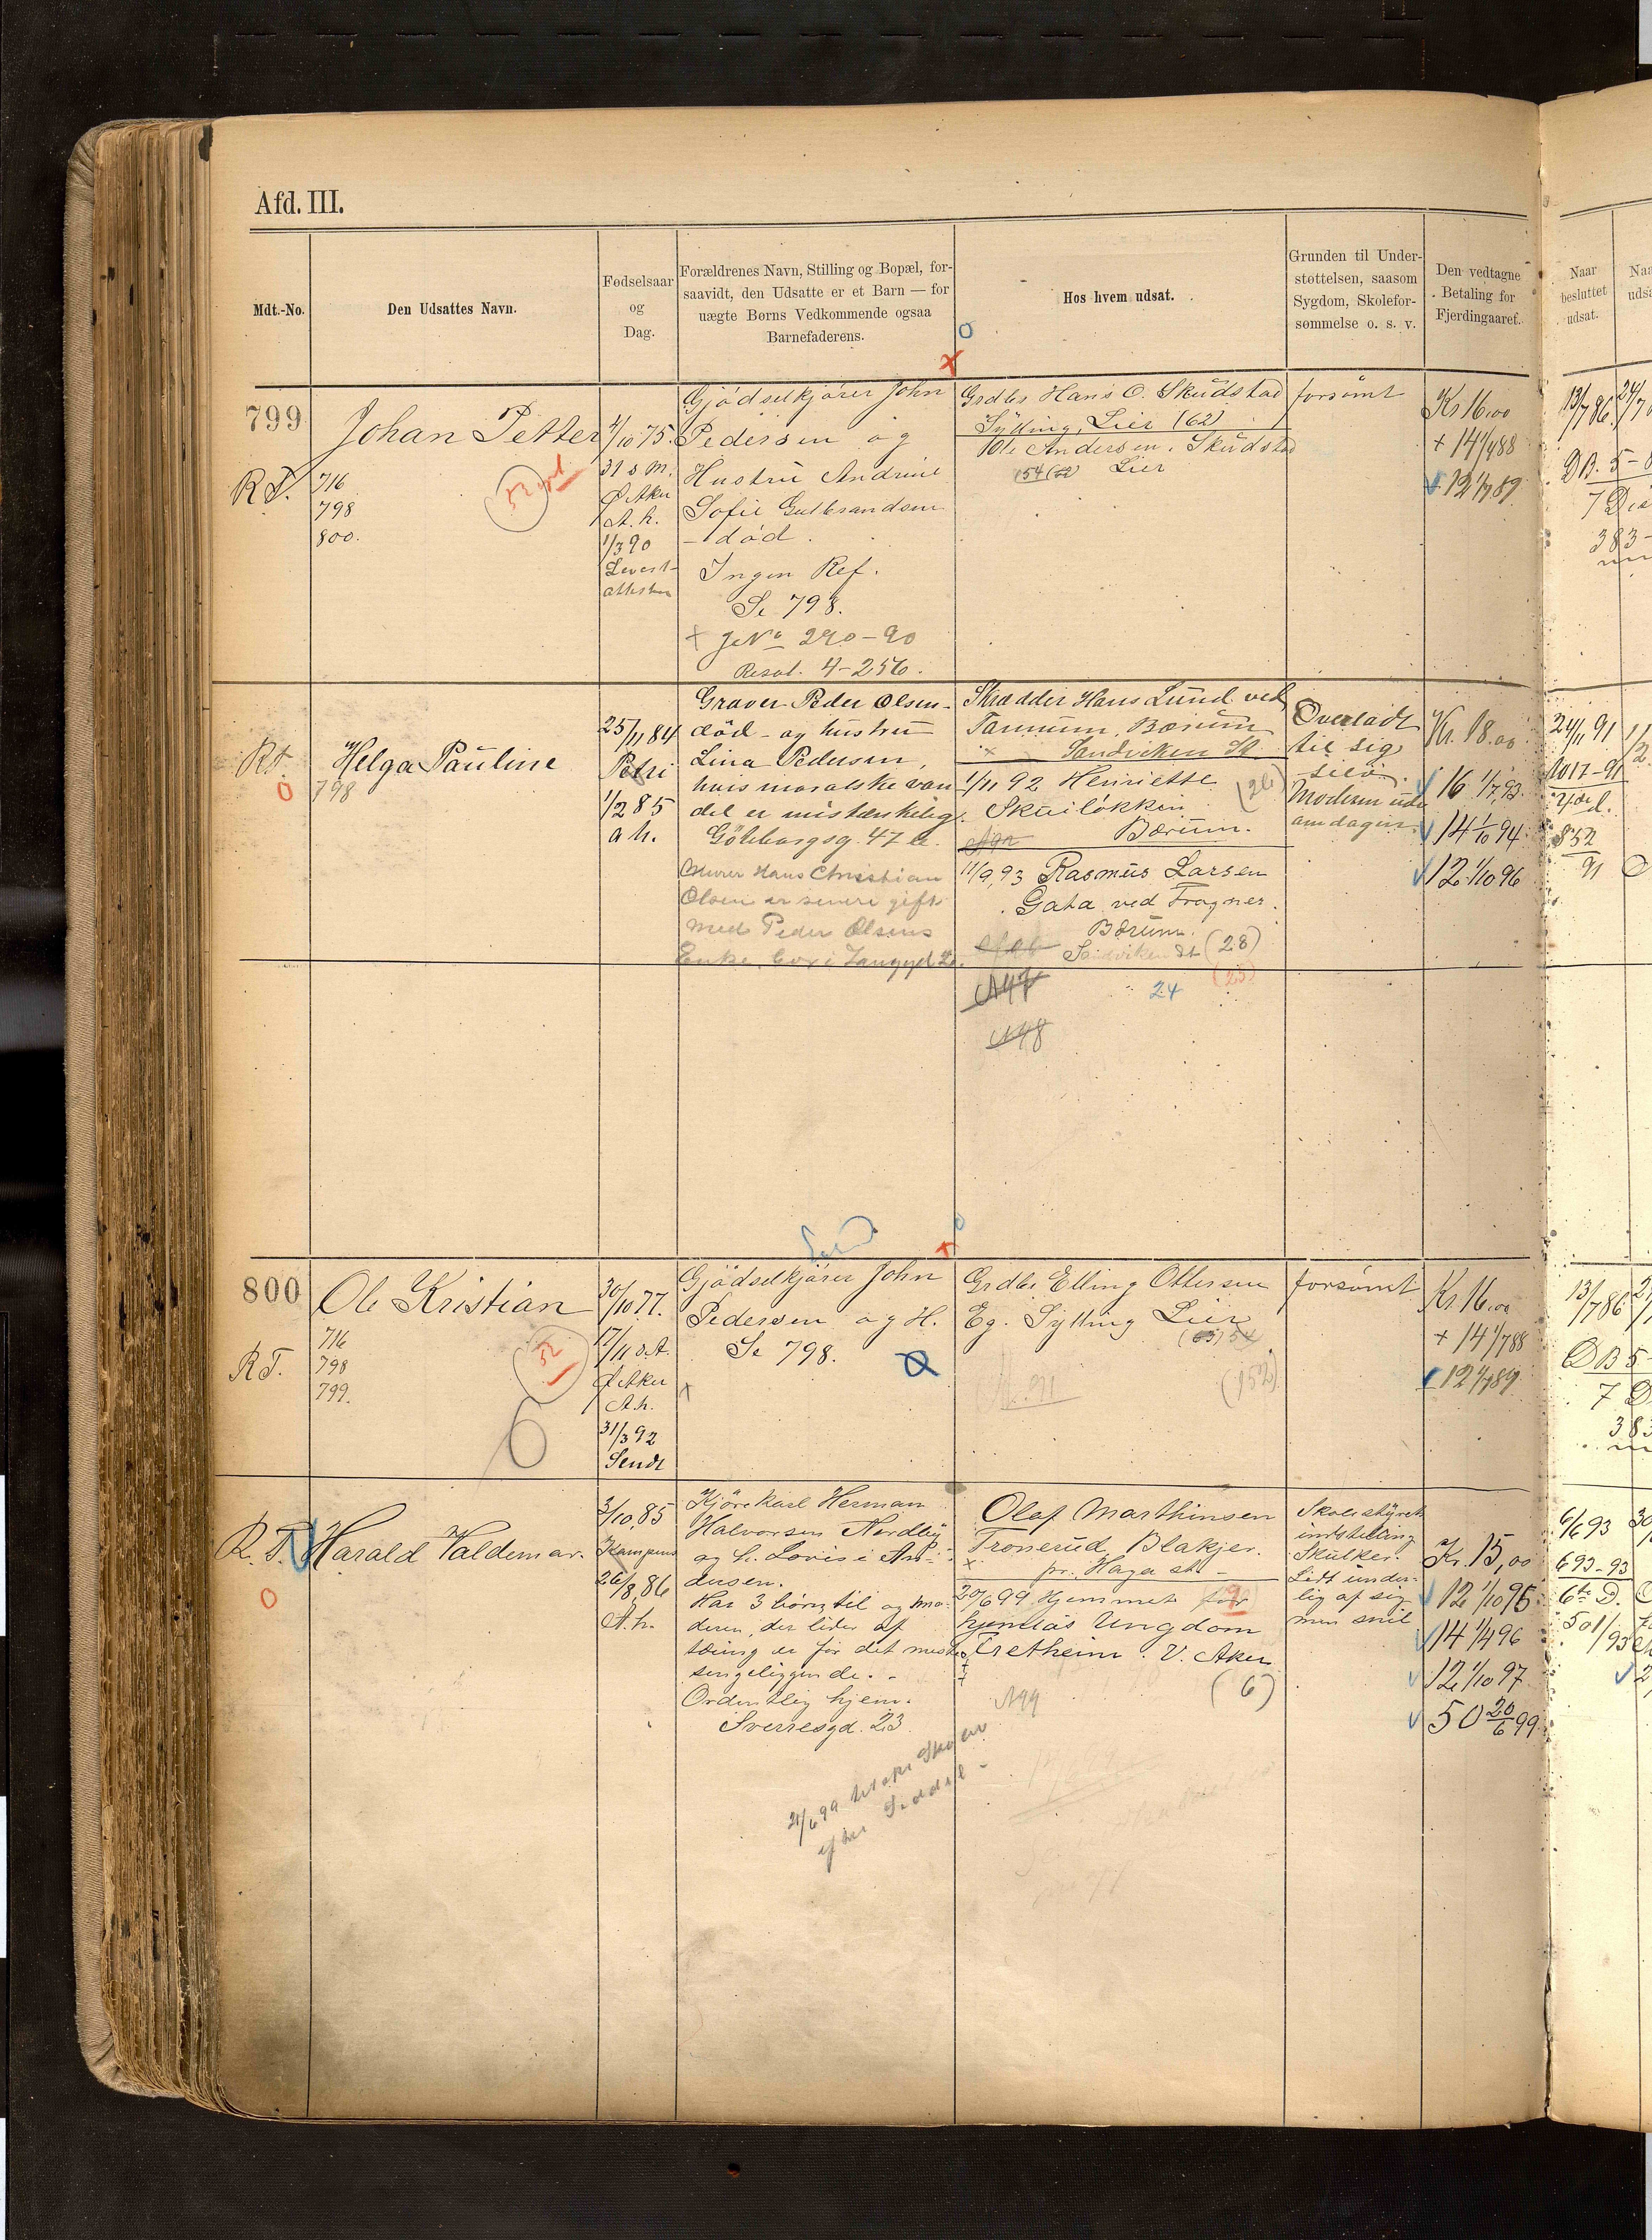 Afd. III.
Mdt.-No.
Den Udsattes Navn.
Fødselsaar
og
Dag.
Forældrenes Navn, Stilling og Bopæl, for-
saavidt, den Udsatte er et Barn — for
uægte Børns Vedkommende ogsaa
Barnefaderens.
Hos hvem udsat.
Grunden til Under-
støttelsen, saasom
Sygdom, Skolefor-
sømmelse o. s. v.
Den vedtagne
Betaling for
Fjerdingaaret.
Naar
besluttet
udsat.
799
R.T.
Johan Petter
716
798
800.
4/10 75.
31 s m.
Ø Aker
A. h.
1/3 90
Levest-
attesten
Gjödselkjörer John
Pedersen og
Hustru Andrine
Sofie Gulbrandsen
- död.
Ingen Ref.
Se 798.
+ JNo 290-90
Resol. 4-256.
Grdbr Hans O. Skudstad
Sylling, Lier (62)
Ole Andersen. Skudstad
Lier
forsömt
Kr 16.00
+ 14 1/7 88
+ 12 1/7 89
13/7 86
DB. 5-
383-
Rt.
0
Helga Pauline
798
25/11 84
Petri
1/2 85
a h.
Graver Peder Olsen-
död - og hustru
Lina Pedersen,
hvis moralske van
del er mistænkelig.
Göteborgsg. 47 b.
Murer Hans Christian
Olsen er senere gift
med Peder Olsens
Enke,
Skrædder Hans Lund ved
Tanum, Bærum
x Sandviken St
1/11 92 Henriette
Skuilökken
Bærum.
(26)
11/9,93 Rasmus Larsen
Gata ved Frogner.
Bærum.
Sandviken St (28)
(25)
24
N97
N98
Overladt
til sig
selv.
Modern ude
om dagen.
Kr. 18.00
16 1/7,93.
14 1/10 94.
12 1/10 96
24/11 91
1017-91
852
91
800
R.T.
Ole Kristian
716
798
799.
52
30/10 77.
17/11 s.A.
Ø Aker
A.h.
31/3 92
Sendt
Gjödselkjörer John
Pedersen og H.
Se 798.
Grdbr Elling Ottersen
Eg. Sylling Lier
forsömt
Kr. 16.00
+ 14 1/7 88
+ 12 1/7 89
13/7 86
DB 5-
R.T.
0
Harald Valdemar.
3/10,85
Kampens
26/8,86
A.h.
Kjörekarl Herman
Halvorsen Nordby
og h. Lovise An-
dersen.
Har 3 börn til og mo-
deren, der lider af
tæring er for det meste
sengeliggende. -
Ordentlig hjem.
Sverresgd. 23.
Olaf Marthinsen
Tronerud, Blakjer.
x pr. Haga st. -
20/6 99 Hjemmet for
hjemlös Ungdom
Tretheim. V. Aker
N99
(6)
Skolestyrets
indstilling
Skulker.
Lidt under-
lig af sig
men snil
Kr. 15,00
12 1/10 95
14 1/4 96
12 1/10 97
50 20/6 99.
6/6 93
693-93
6te D.
501/93